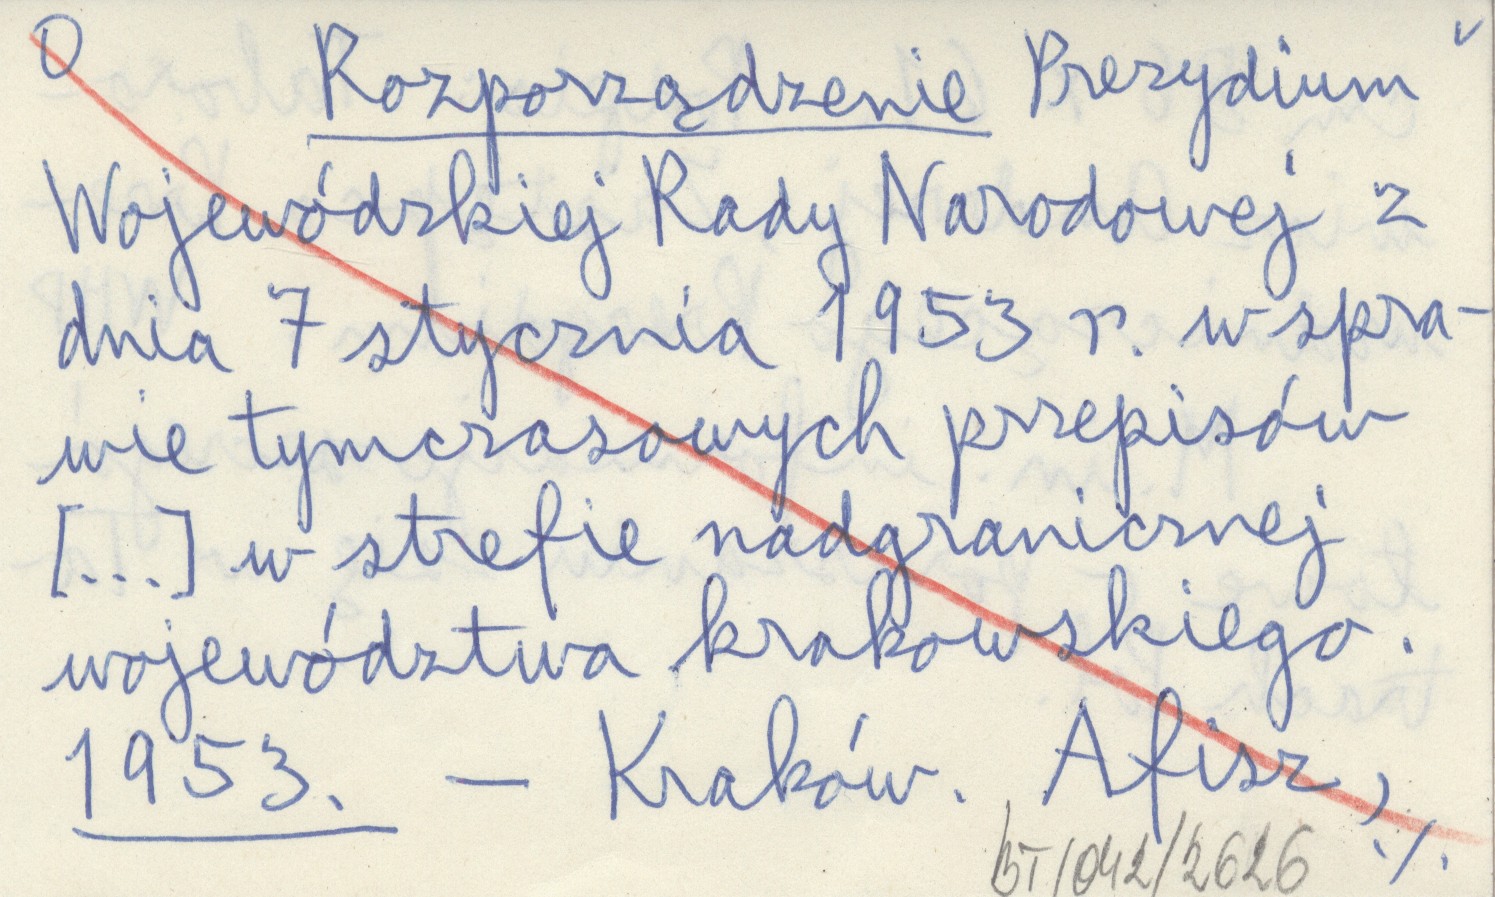 O Rozporządzenie Prezydium
Wojewódzkiej Rady Narodowej z
dnia 7 stycznia 1953 r. w spra-
wie tymczasowych przepisów
[...] w strefie nadgranicznej
województwa krakowskiego.
1953. — Kraków. Afisz,
./.
BT/042/2626